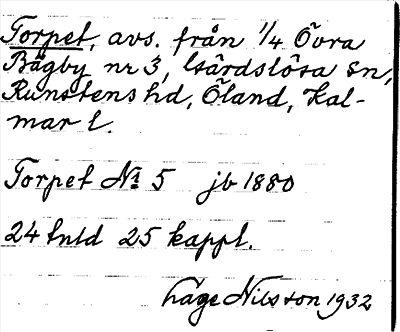 Torpet, avs. från 1/4 Övra
Bägby nr 3, Gärdslösa sn,
Runstens hd, Öland, Kal-
mar l.
Torpet No 5 jb 1880
24 tnld 25 kappl.
Håge Nilsson 1932